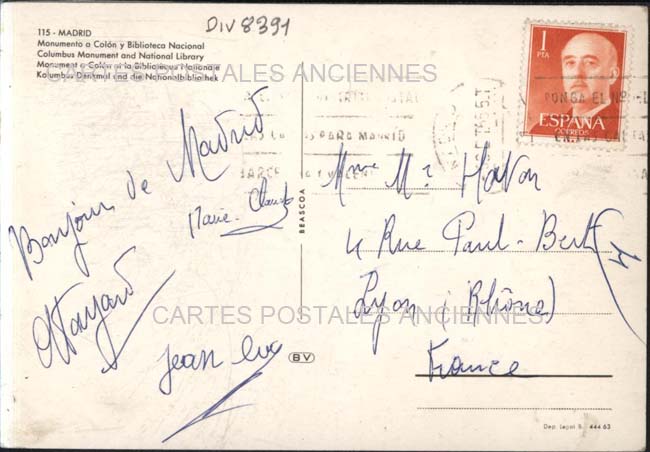 DIV 8391
115 - MADRID
Monumento a Colón y Biblioteca Nacional
Columbus Monument and National Library
Monument a Colón et la Bibliothèque Nationale
Kolumbus Denkmal und die Nationalbibliothek
CARTES POSTALES ANCIENNES
1
PTA
ESPAÑA
CORREOS
PONGA EL
PARA MADRID
Bonjour de Madrid
Marie-Claude
Jean Luc
BEASCOA
BV
Mme Mr
4 Rue Paul-Bert
Lyon (Rhône)
France
CARTES POSTALES ANCIENNES
Dep. Legal B. 444 63